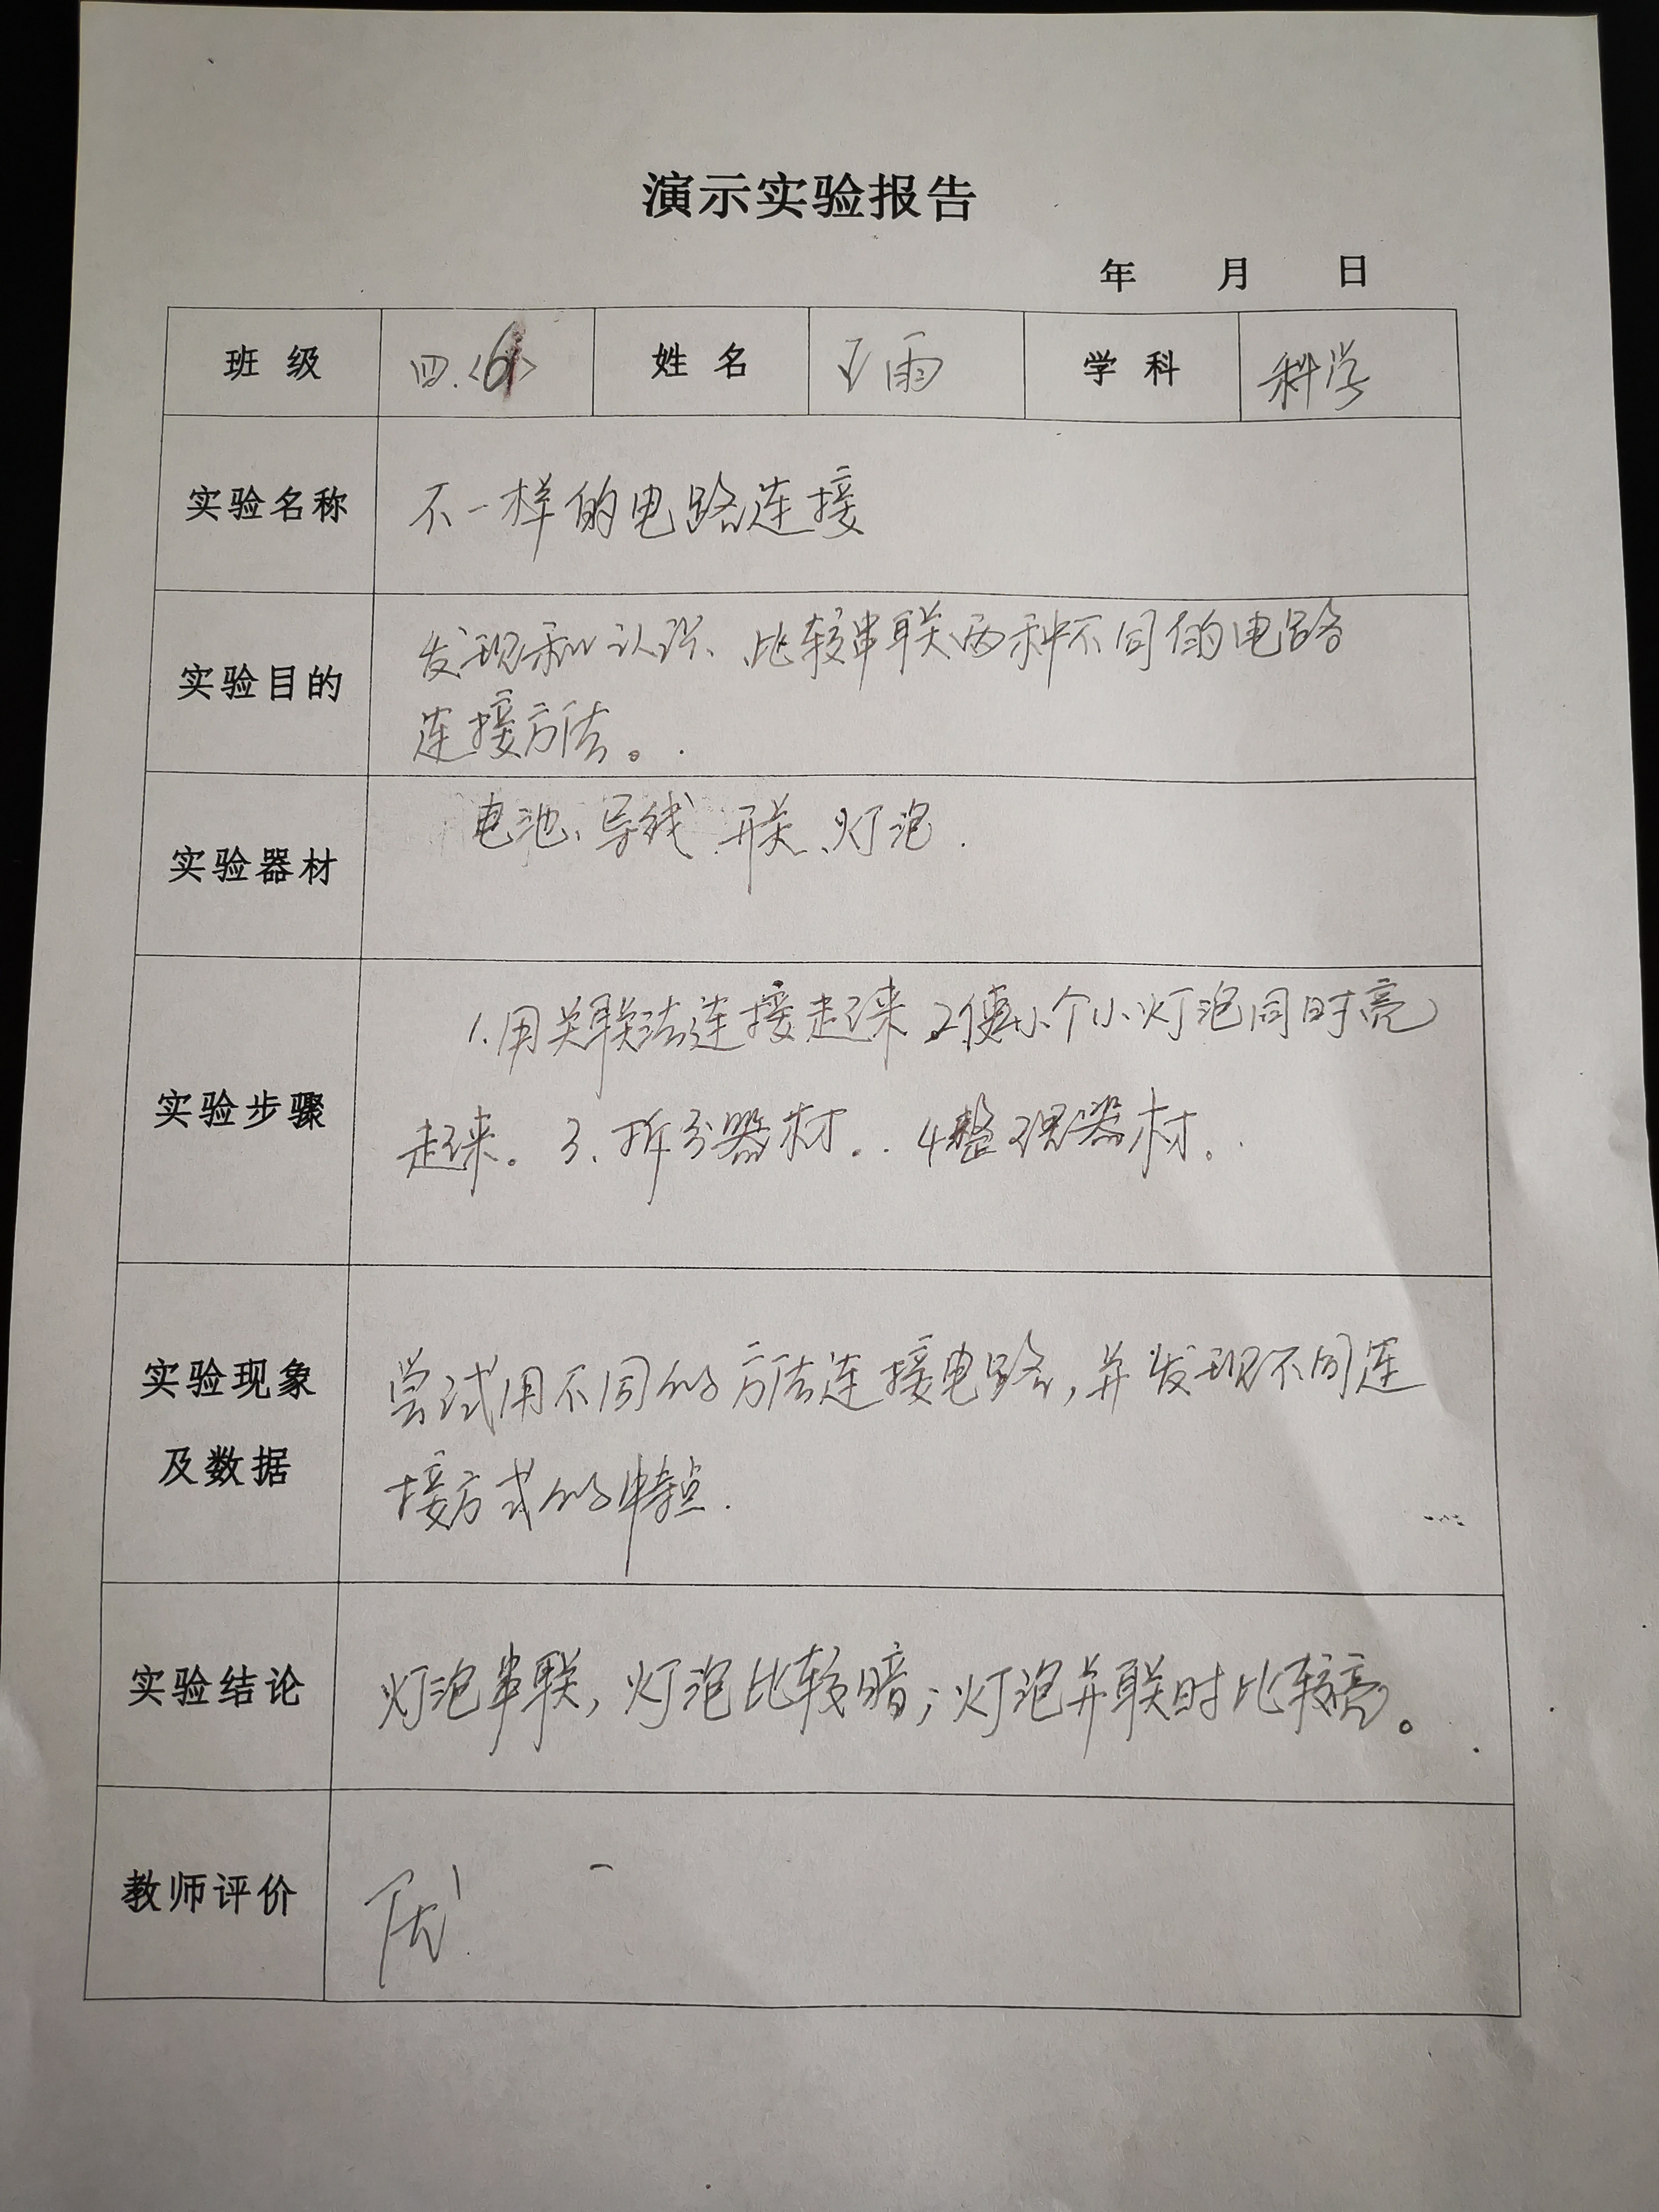 演示实验报告
年 月 日
班 级 四.<6> 姓 名 王雨 学 科 科学
实验名称 不一样的电路连接
实验目的 发现和认识、比较串联两种不同的电路
连接方法。
实验器材 电池、导线 开关、灯泡.
实验步骤 1.用关联法连接起来 2使小个小灯泡同时亮
起来。3、拆分器材.. 4整理器材。
实验现象 尝试用不同的方法连接电路,并发现不同连
及数据 接方式的特点.
实验结论 灯泡串联,灯泡比较暗;灯泡并联时比较亮。
教师评价 优